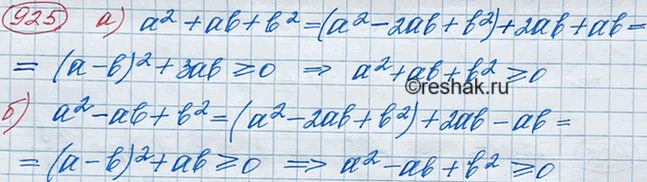 925 а) a² + ab + b² = (a² - 2ab + b²) + 2ab + ab =
= (a - b)² + 3ab ≥ 0 ⇒ a² + ab + b² ≥ 0
©reshak.ru
б) a² - ab + b² = (a² - 2ab + b²) + 2ab - ab =
= (a - b)² + ab ≥ 0 ⇒ a² - ab + b² ≥ 0